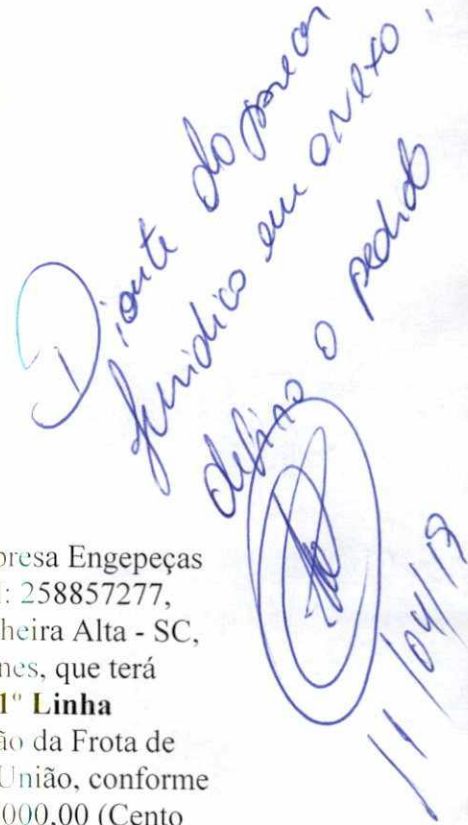 Diante do parecer
jurídico em anexo,
defiro o pedido
11/04/19
presa Engepeças
: 258857277,
heira Alta - SC,
nes, que terá
1º Linha
ão da Frota de
União, conforme
000,00 (Cento